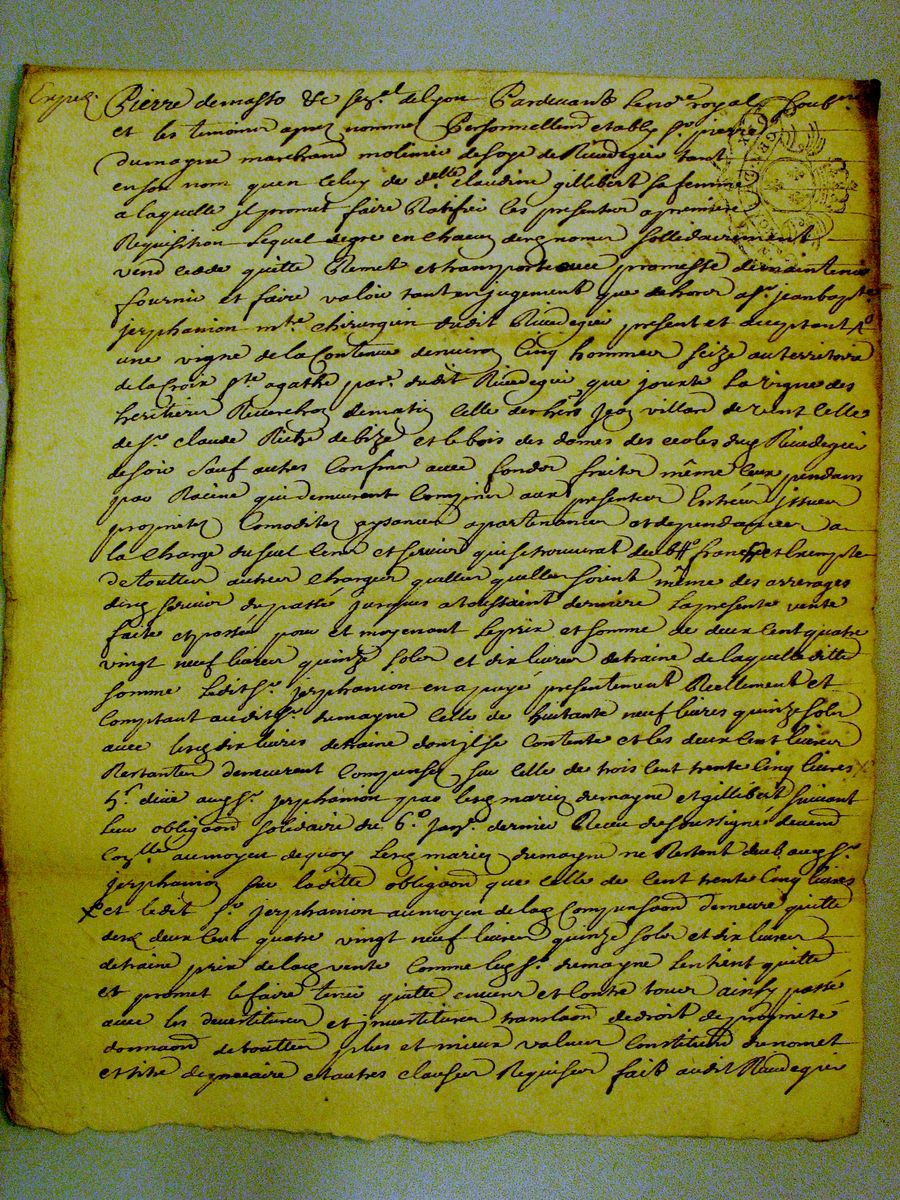 Pierre demasso &c sen.al de lyon Pardevant le no.re royal
et les temoins apres nommes Personnellem.t etably s.r pierre
dumagne marchand molinié de soye de Rivedegier tant
en son nom qu'en celuy de d.elle claudine gillibert sa femme
a laquelle jl promet faire Ratifier les presentes a premiere
Requisition Lequel degré en chacun desq noms sollidairement
vend cedde quitte Remet et transporte avec promesse de maintenir
fournir et faire valoir tant en jugement que dehors a s.r jean bapte
jerphanion m.tre chirurgien dudit Rivedegier present et acceptant
une vigne de la Contenue d'environ cinq hommes scize au territoire
de la Croix s.te agathe par. dudit Rivedegier que jouxte la vigne des
heritiers Reverchon de matin celle des hers jean villard de vent celle
de s.r claude de bize et le bois des dames des ecoles dud Rivedegier
de soir sauf autres Confins avec fonds fruits même ceux pendans
par Racine qui demeurent Comprins aux presentes Entrées jssues
proprietes Comodites aysances apartenances et dependances a
la charge du seul cens et servis qui se trouverat franche et Exempte
de touttes autres charges quelles quelles soient même des arrerages
dud servis du passé jusques a toussaint derniere La presente vente
faite et passée pour et moyenant le prix et somme de deux cent quatre
vingt neuf livres quinze sols et dix livres detraine de laquelle ditte
somme Ledit s.r jerphanion en a payé presentement Reellement et
Comptant audit s.r dumagne celle de huitante neuf livres quinze sols
avec lesq dix livres detraine dont jl se Contente et les deux cent livres
Restantes demeurent Compensées sur celle de trois cent trente Cinq livres
düe aud s.r jerphanion par lesq mariés dumagne et gillibert suivant
leur obligaond solidaire du 6.e janv.r dernier Receu
au moyen de quoy Lesq mariés dumagne ne Restent deub aud s.r
jerphanion sur laditte obligaond que celle de Cent trente Cinq livres
x et ledit s.r jerphanion au moyen de lad Compensaond demeure quitte
desd deux Cent quatre vingt neuf livres quinze sols et dix livres
detraine prix de lad vente comme led s.r dumagne l'en tient quitte
et promet le faire tenir quitte envers et Contre tous ainsy passé
avec les devestitures et jnvestitures translaond de droit de proprieté
donnaond de touttes plus et mieux values Constitiond
et titre de precaire et autres clauses Requises fait audit Rivedegier